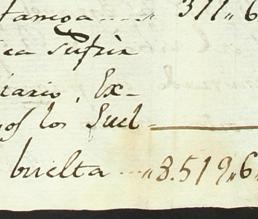 tancoa ---- " 311,, 6
ica Sufrir
diario, Ex-
nos los Suel-
buelta --- " 8.519,, 6,,